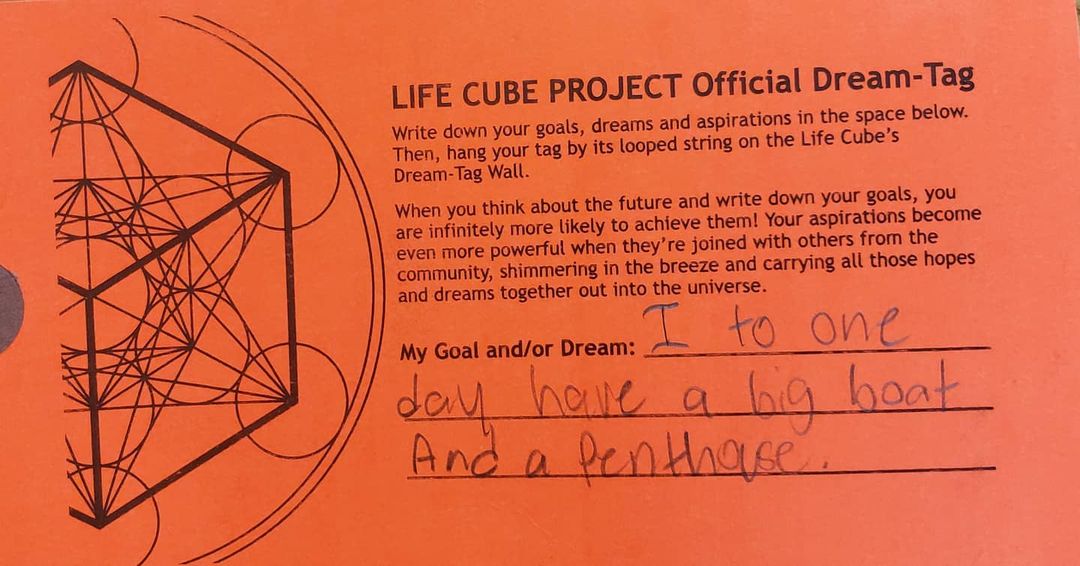 LIFE CUBE PROJECT Official Dream-Tag
Write down your goals, dreams and aspirations in the space below.
Then, hang your tag by its looped string on the Life Cube's
Dream-Tag Wall.
When you think about the future and write down your goals, you
are infinitely more likely to achieve them! Your aspirations become
even more powerful when they're joined with others from the
community, shimmering in the breeze and carrying all those hopes
and dreams together out into the universe.
My Goal and/or Dream: I to one
day have a big boat
And a penthouse.